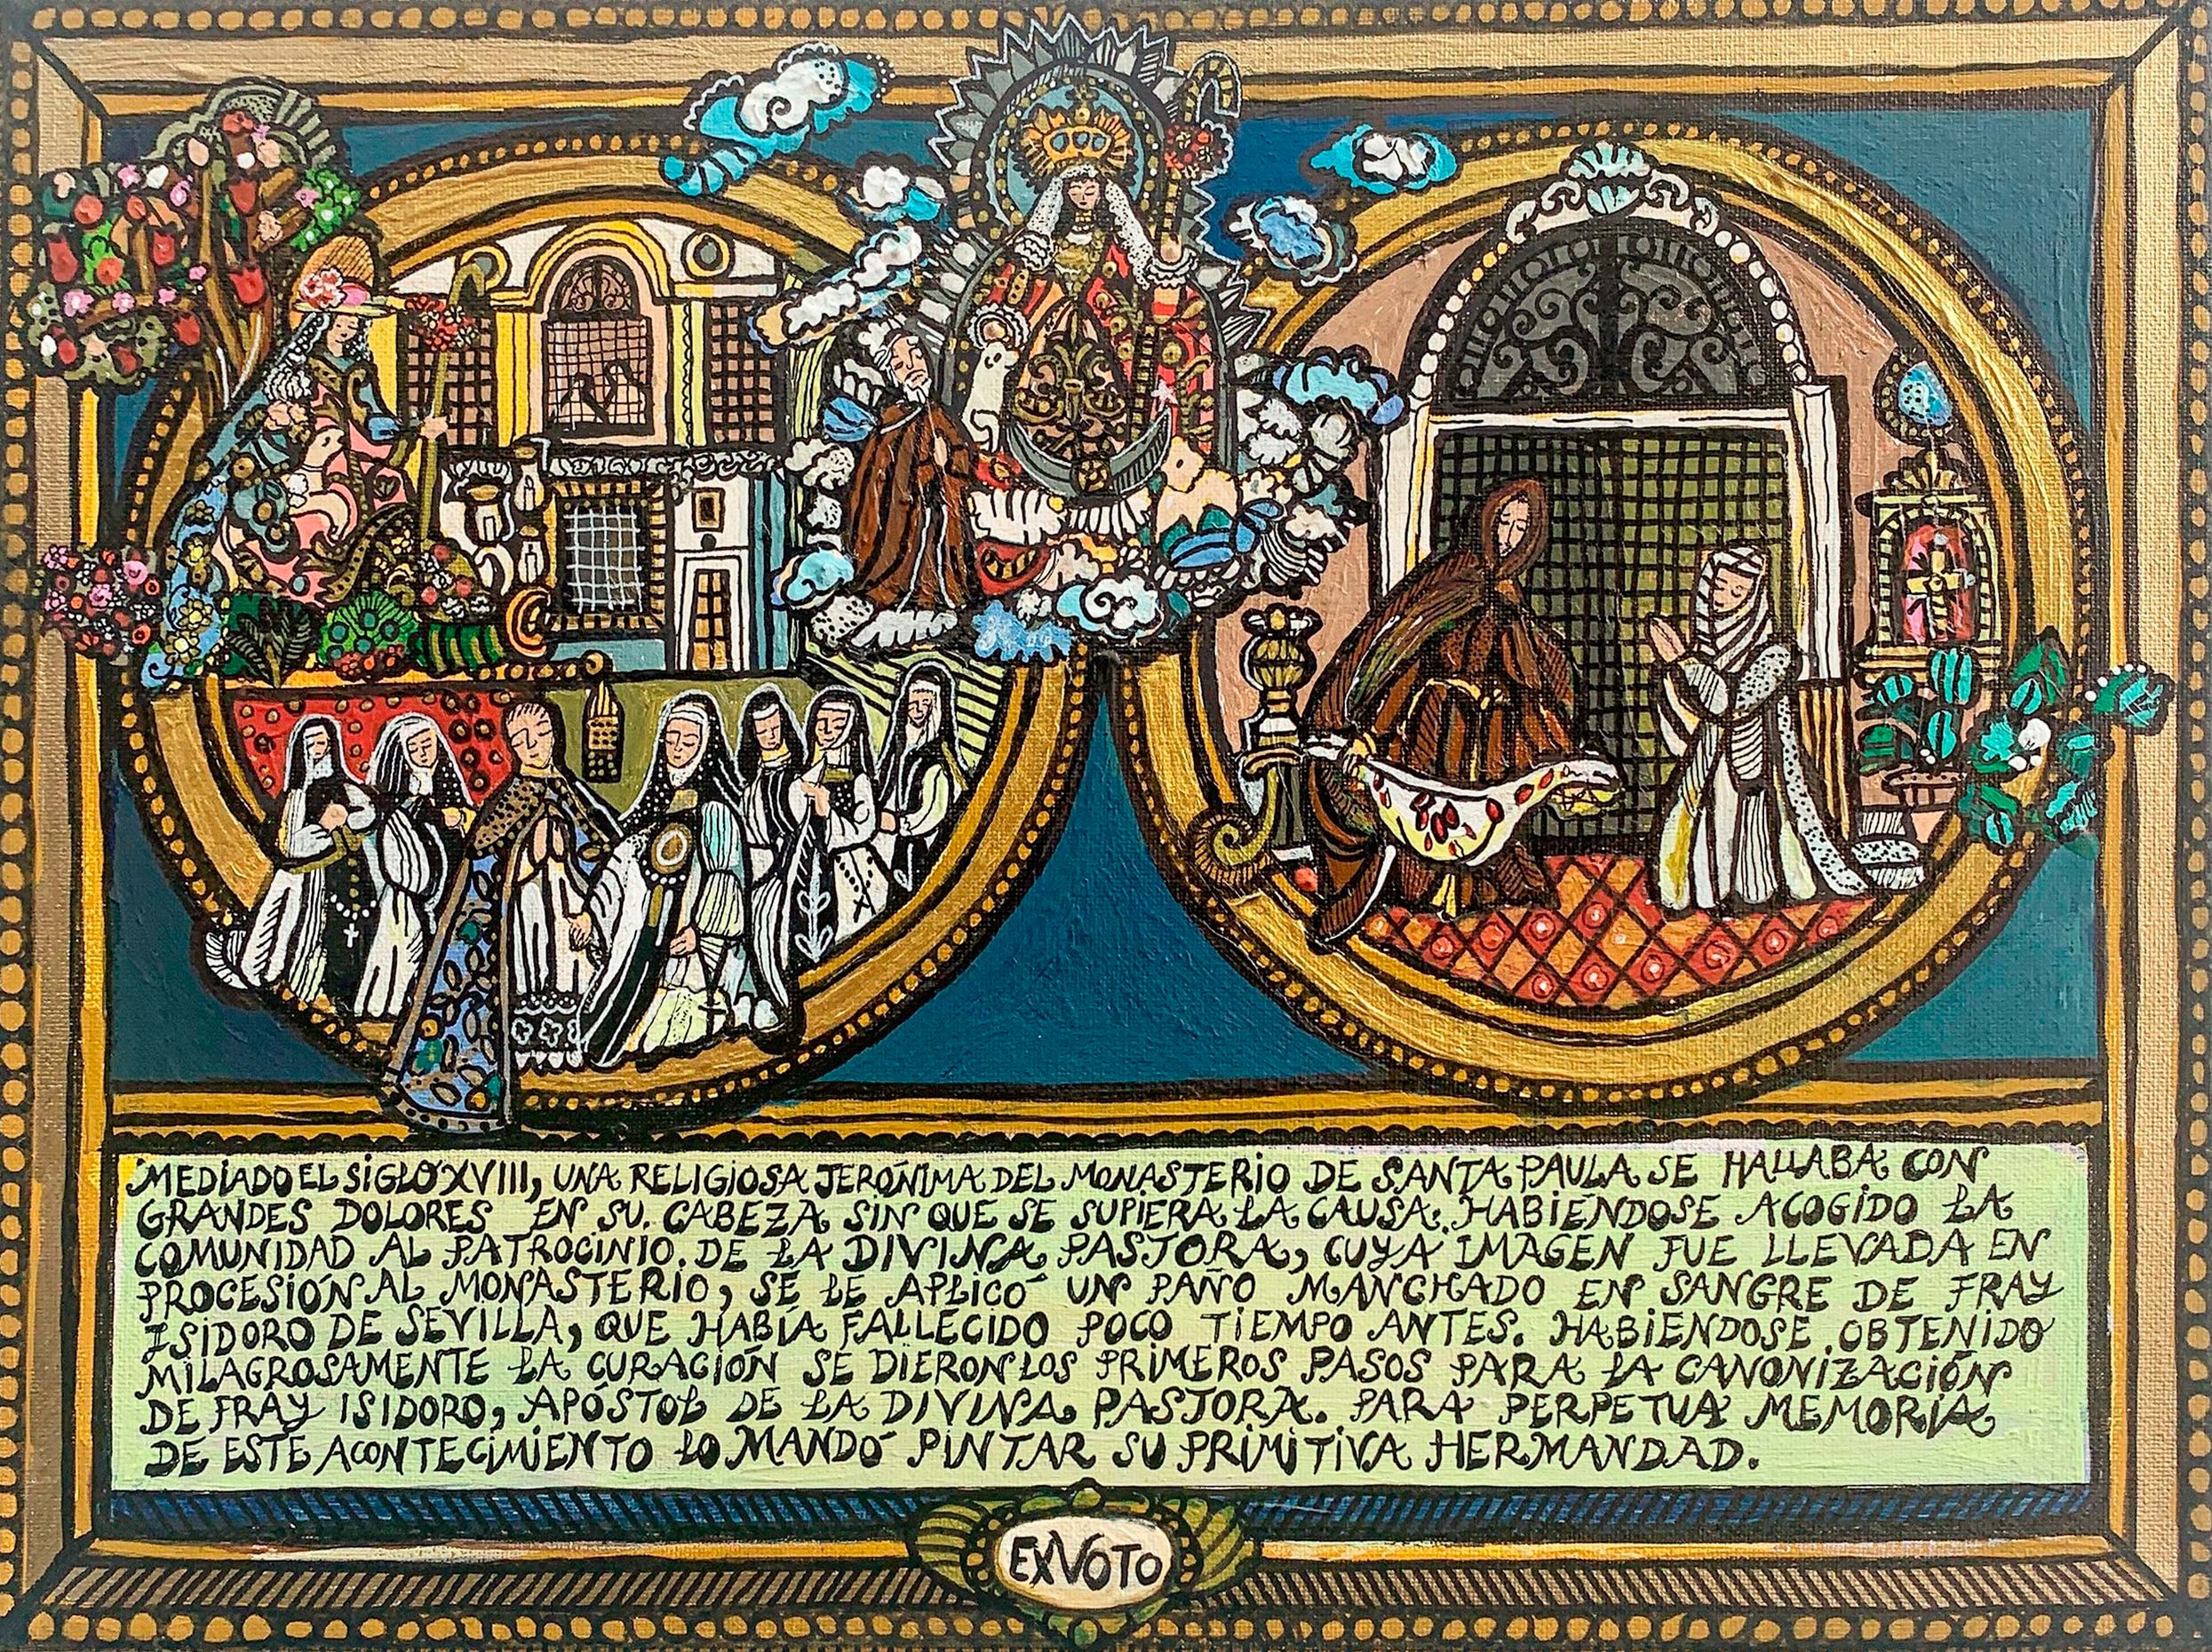 MEDIADO EL SIGLO XVIII, UNA RELIGIOSA JERÓNIMA DEL MONASTERIO DE SANTA PAULA SE HALLABA CON
GRANDES DOLORES EN SU CABEZA SIN QUE SE SUPIERA LA CAUSA. HABIENDOSE ACOGIDO LA
COMUNIDAD AL PATROCINIO DE LA DIVINA PASTORA, CUYA IMAGEN FUE LLEVADA EN
PROCESIÓN AL MONASTERIO, SE LE APLICÓ UN PAÑO MANCHADO EN SANGRE DE FRAY
ISIDORO DE SEVILLA, QUE HABÍA FALLECIDO POCO TIEMPO ANTES. HABIENDOSE OBTENIDO
MILAGROSAMENTE LA CURACIÓN SE DIERON LOS PRIMEROS PASOS PARA LA CANONIZACIÓN
DE FRAY ISIDORO, APÓSTOL DE LA DIVINA PASTORA. PARA PERPETUA MEMORIA
DE ESTE ACONTECIMIENTO LO MANDÓ PINTAR SU PRIMITIVA HERMANDAD.
EXVOTO